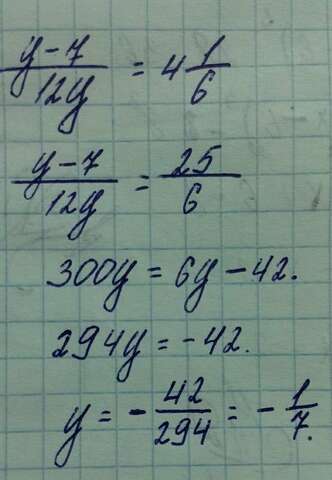 y-7/12y = 4 1/6
y-7/12y = 25/6
300y = 6y - 42.
294y = -42.
y = - 42/294 = - 1/7.